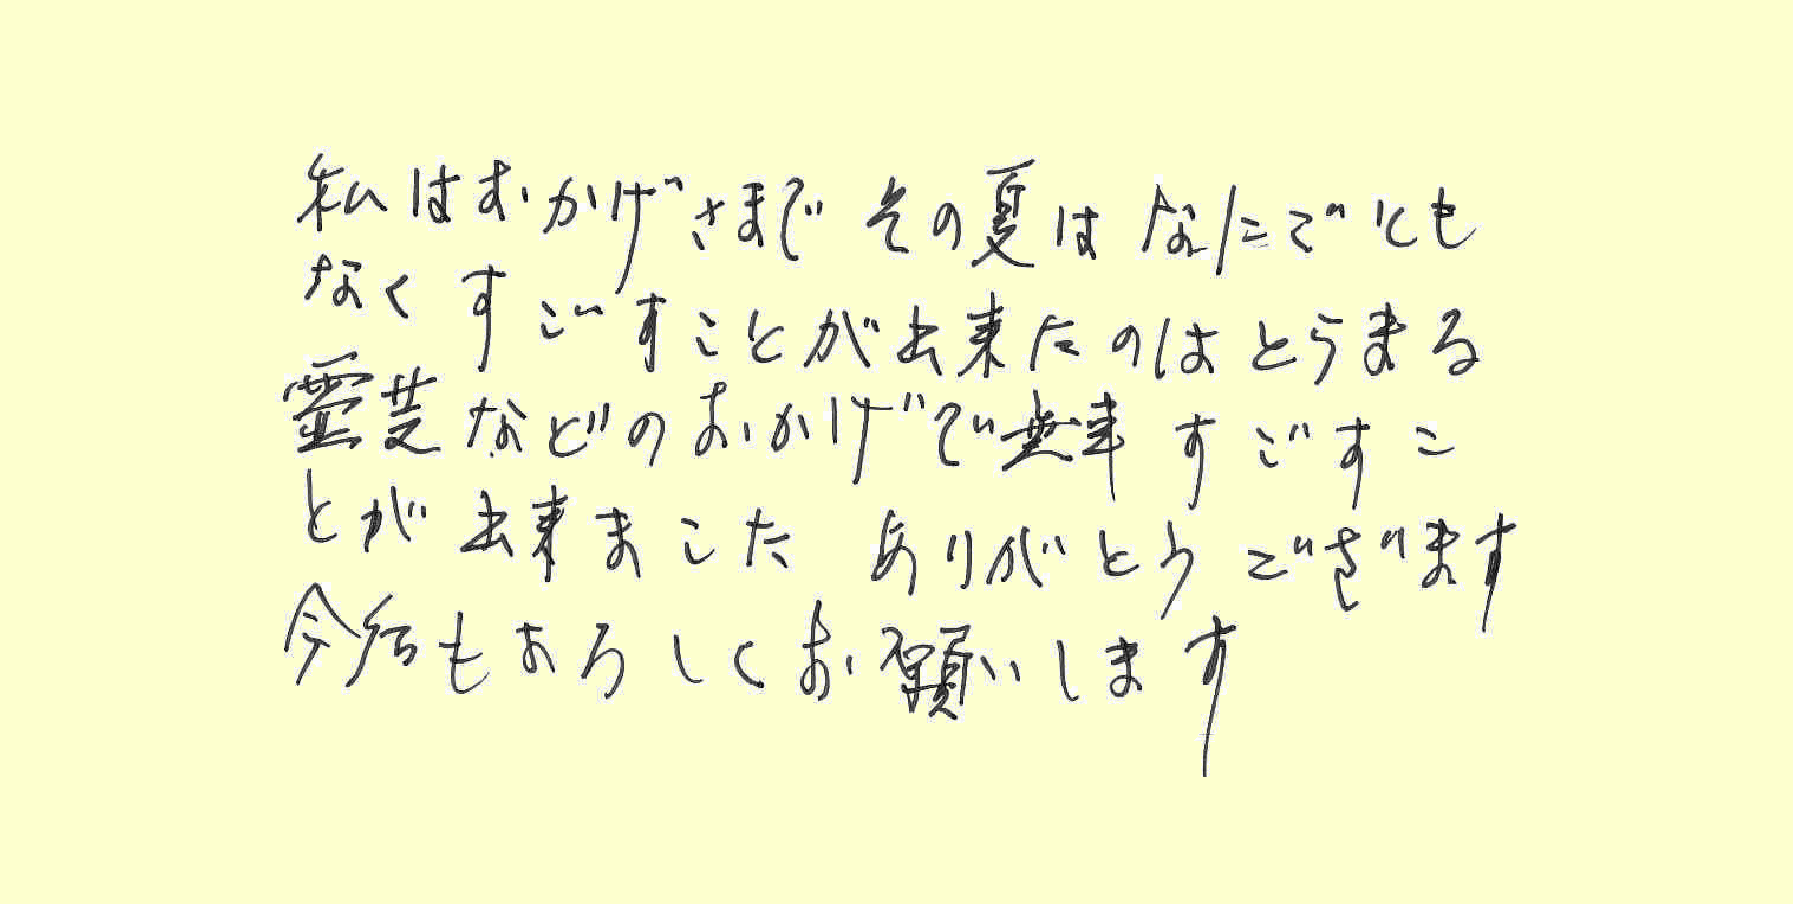 私はおかげさまで その夏は なにごとも
なくすごすことが出来たのはとうまる
霊芝などのおかげで無事すごすこ
とが出来ました ありがとうございます
今后もよろしくお願いします